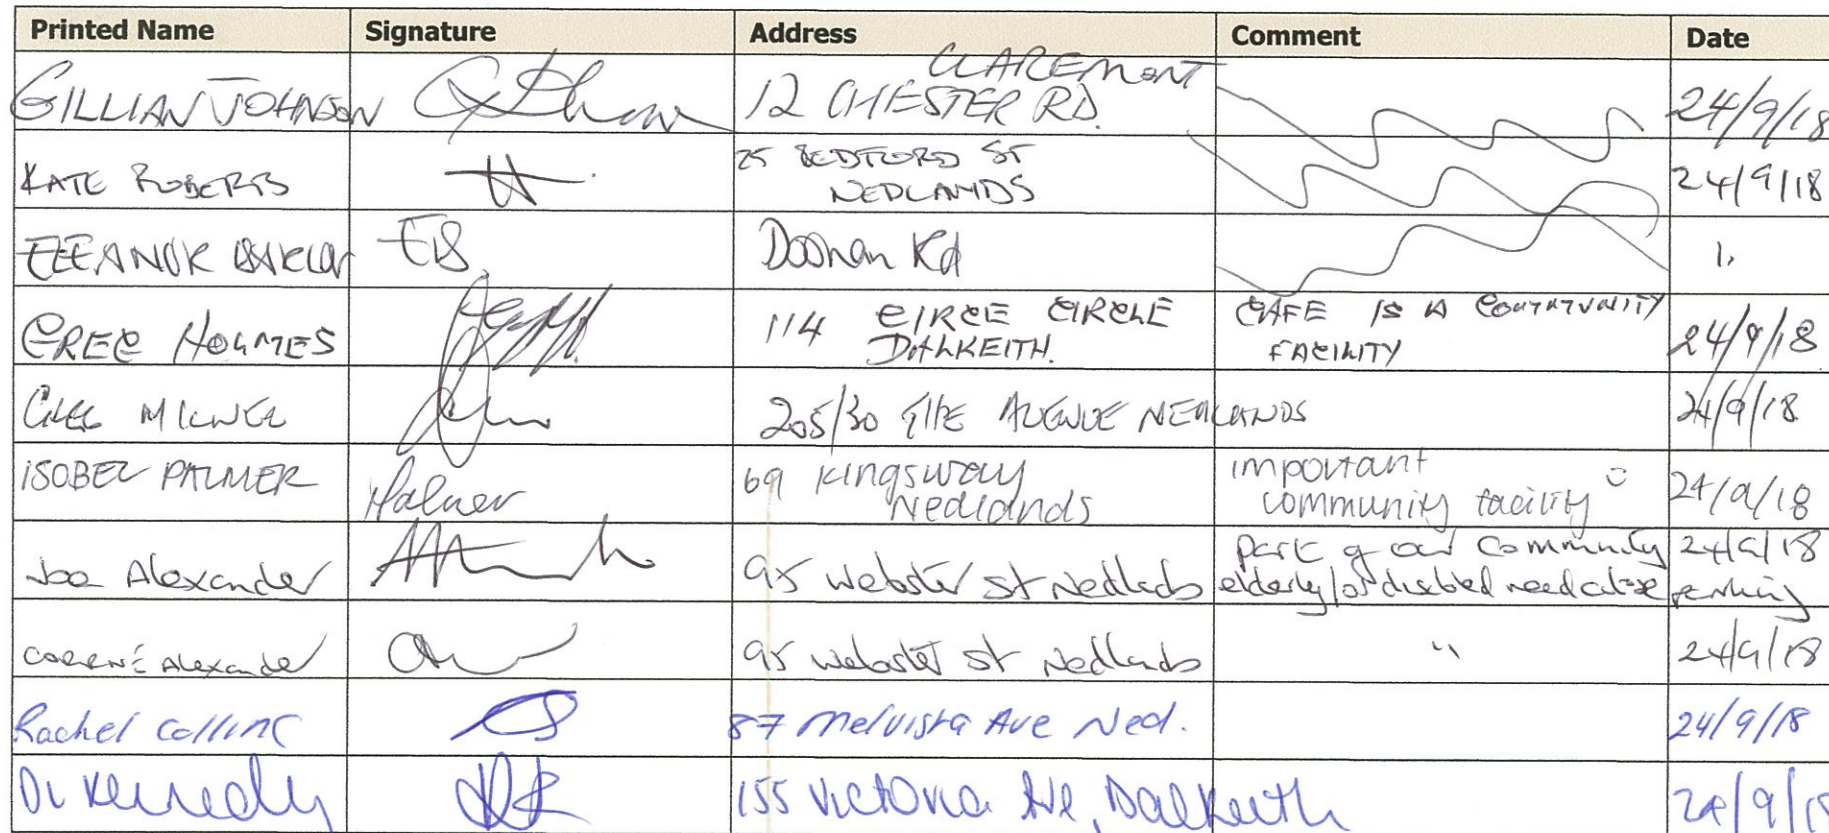 Printed Name Signature Address Comment Date
GILLIAN JOHNSON 12 CHESTER RD. CLAREMONT 24/9/18
KATE ROBERTS 25 BEDFORD ST NEDLANDS 24/9/18
ELEANOR Doonan Rd
GREG HOLMES 114 CIRCE CIRCLE DALKEITH. CAFE IS A COMMUNITY FACILITY 24/9/18
205/30 THE AVENUE NEDLANDS 24/9/18
ISOBEL PALMER Palmer 69 Kingsway Nedlands important community facility 24/9/18
Joe Alexander 95 Webster St Nedlands Part of our community elderly/or disabled need close parking 24/9/18
CORRENÉ Alexander 95 Webster St Nedlands " 24/9/18
Rachel Collins 87 Melvista Ave Ned. 24/9/18
Di Kennedy 155 Victoria Ave, Dalkeith 24/9/18